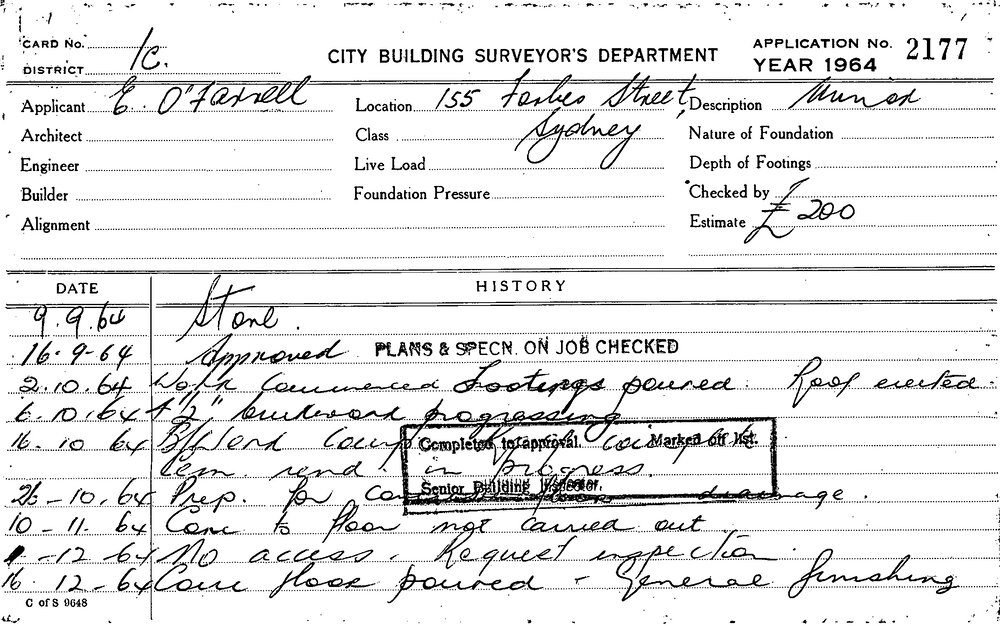 CARD No.
DISTRICT 1c.
CITY BUILDING SURVEYOR'S DEPARTMENT
APPLICATION No. 2177
YEAR 1964
Applicant E. O'Farrell
Location 155 Forbes Street, Sydney
Description Minor
Architect
Class
Nature of Foundation
Engineer
Live Load
Depth of Footings
Builder
Foundation Pressure
Checked by
Alignment
Estimate £ 200
DATE HISTORY
9.9.64 Store.
16.9-64 Approved PLANS & SPECN. ON JOB CHECKED
2.10.64 Work Commenced Footings poured. Roof erected.
6.10.64 4½" brickwork progressing
16.10 64
Completed to approval. Marked off list.
Cem rend. in progress.
Senior Building Inspector.
26-10.64 Prep. for drainage.
10-11.64 Conc to floor not carried out.
-12-64 No access. Request inspection.
16.12-64 Conc floor poured - General finishing
C of S 9648